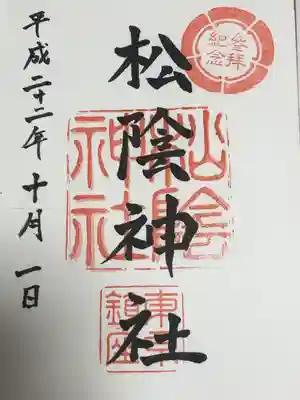 参拝
紀念
松陰神社
松陰神社
東京
鎮座
平成二十二年十月一日